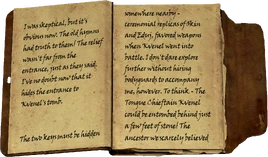 I was skeptical, but it's
obvious now. The old hymns
had truth to them! The relief
wasn't far from the
entrance, just as they said.
I've no doubt now that it
hides the entrance to
Kvenel's tomb.
The two keys must be hidden
somewhere nearby -
ceremonial replicas of Okin
and Eduj, favored weapons
when Kvenel went into
battle. I don't dare explore
further without hiring
bodyguards to accompany
me, however. To think - The
Tongue Chieftain Kvenel
could be entombed behind just
a few feet of stone! The
ancestor we scarcely believed